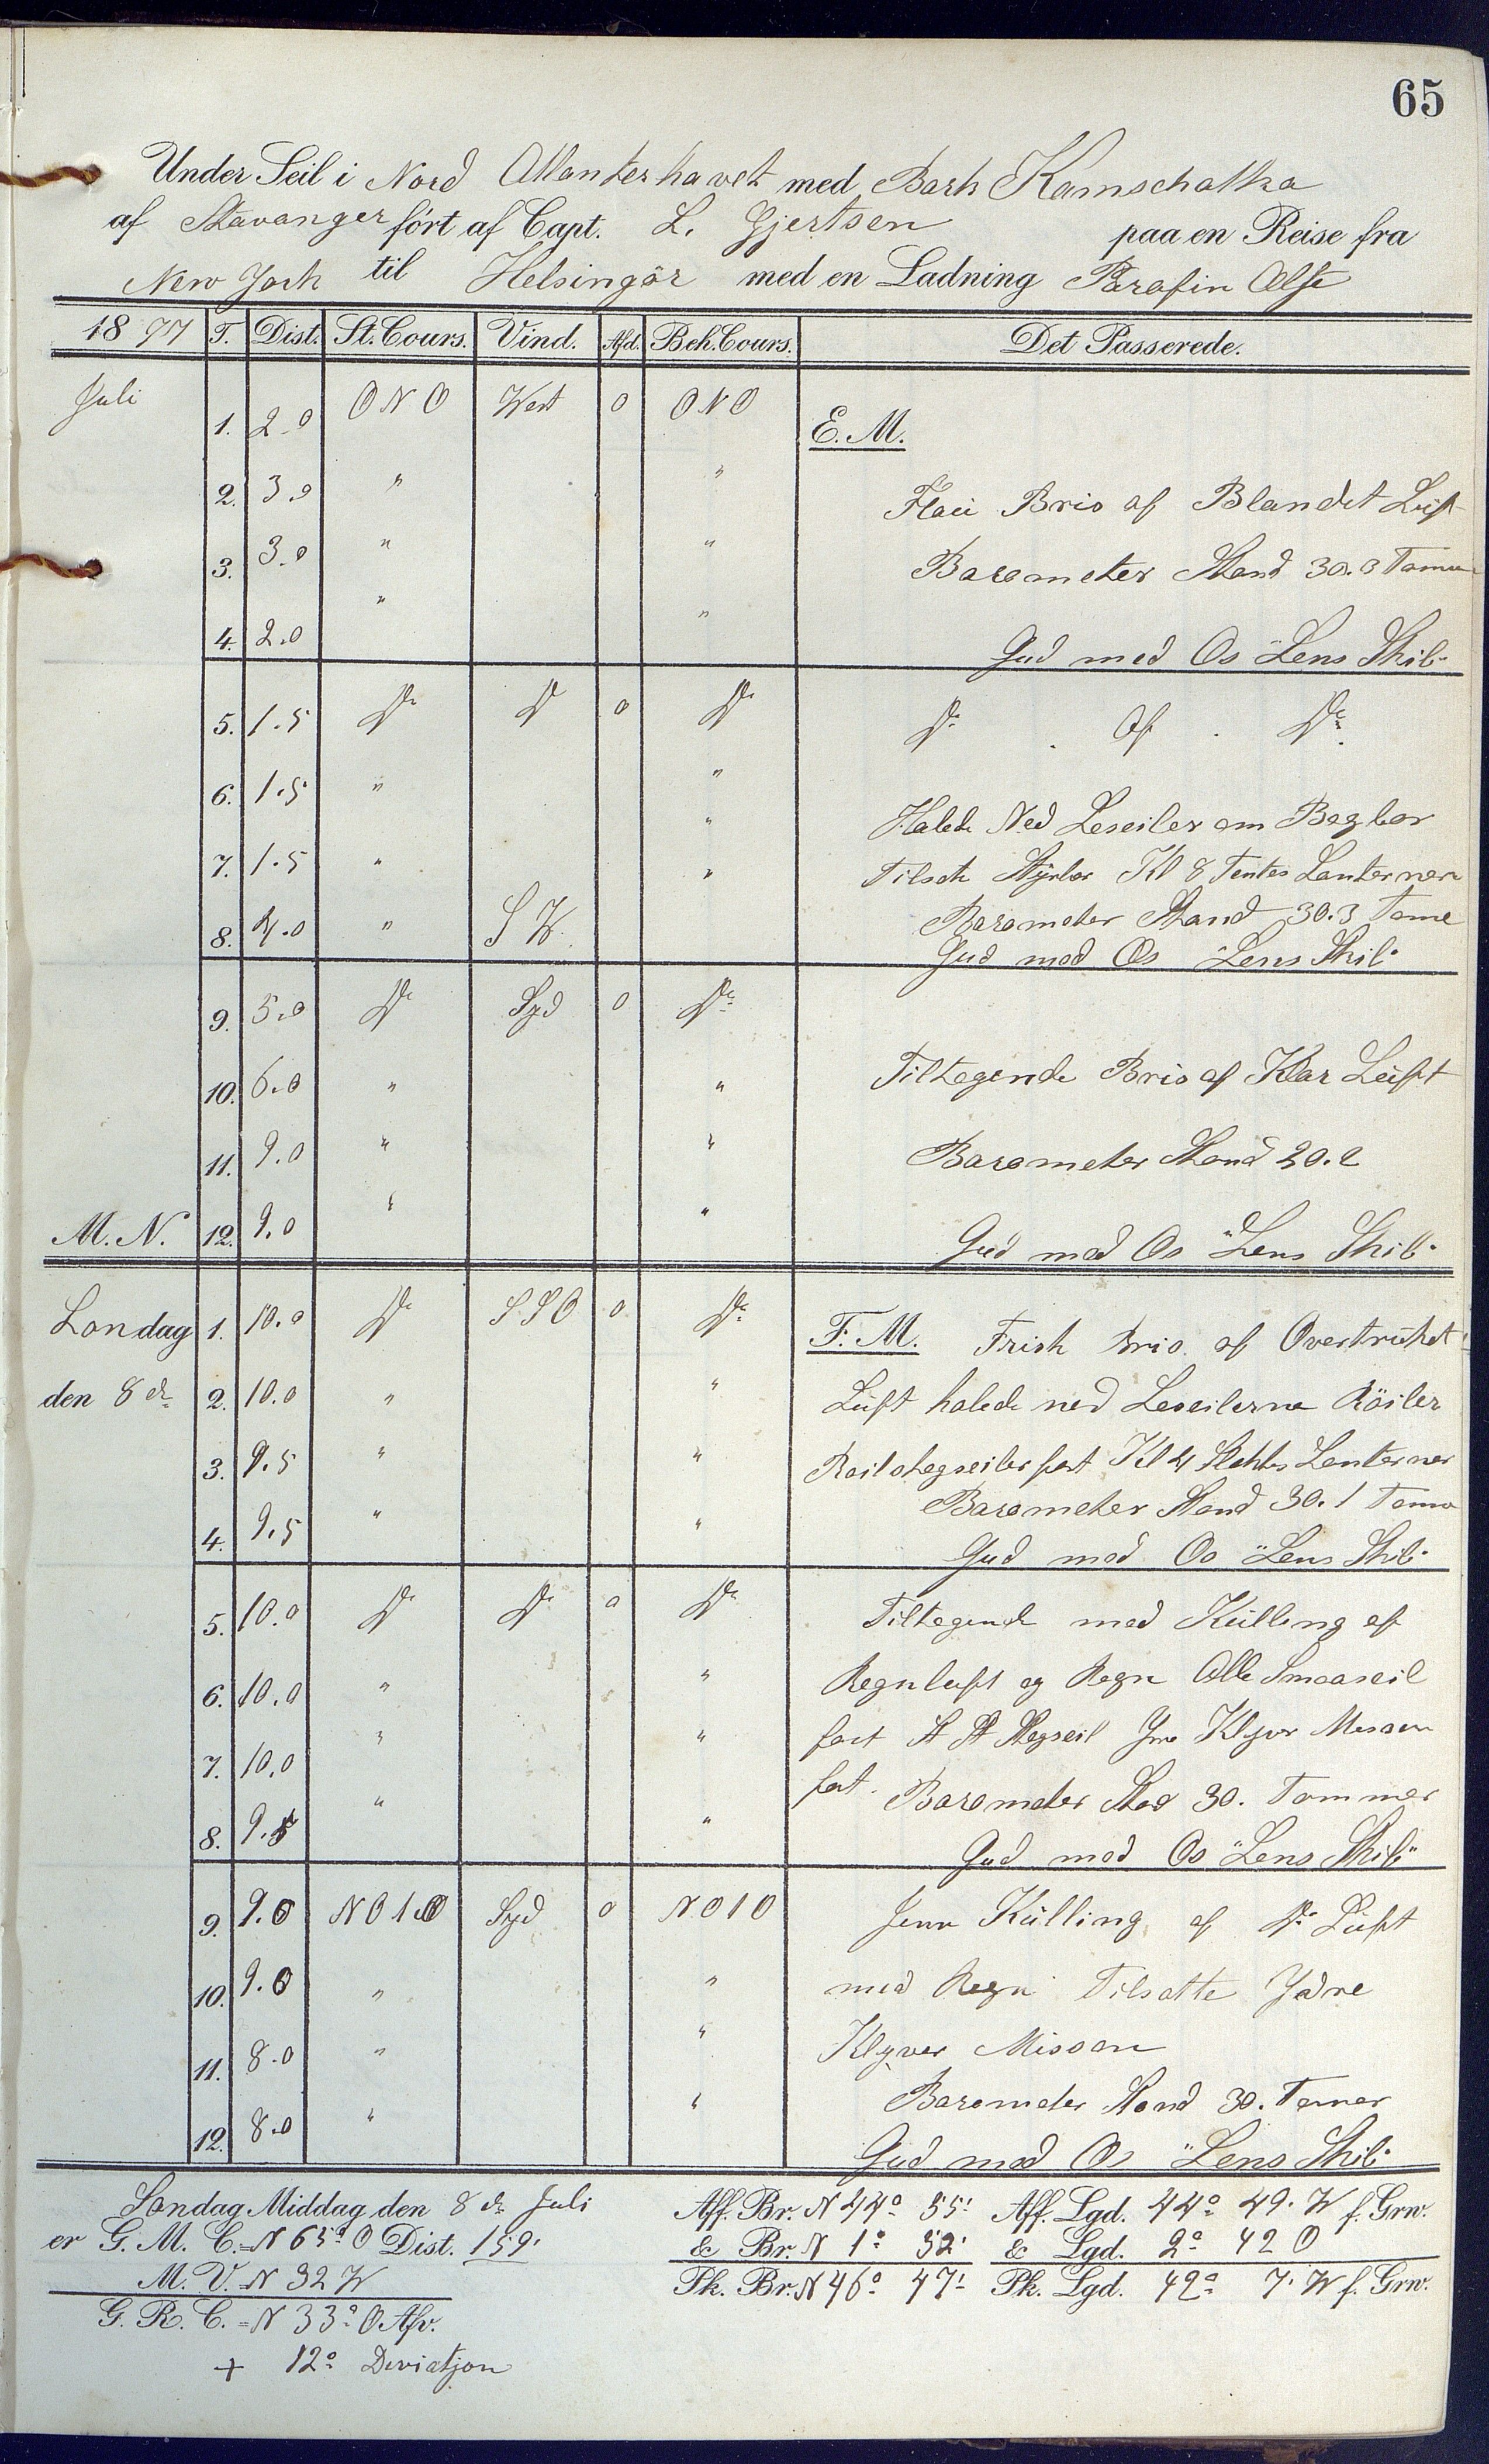 65
Under Seil i Nord Atlanterhavet med Bark Kamschatka
af Stavanger ført af Capt. L. Gjertsen paa en Reise fra
New York til Helsingör med en Ladning Parafin Olje
1877 T. Dist. St. Cours. Vind. Afd. Beh. Cours. Det Passerede.
Juli 1. 2.0 ONO West 0 ONO E. M.
2. 3.0 " " Flau Bris af Blandet Luft
3. 3.0 " " Barometer Stand 30.3 Tomme
4. 2.0 " " Gud med Os "Lens Skib"
5. 1.5 Do Do 0 Do Do Af Do
6. 1.5 " "
7. 1.5 " " Halede Ned Leseiler om Bagbor
Tilsatte Styrbor Kl 8 Tentes Lanternern
8. 4.0 " SW " Barometer Stand 30.3 Tome
Gud med Os Lens Skib"
9. 5.0 Do Syd 0 Do
10. 6.0 " " Tiltagende Bris af Klar Luft
11. 9.0 " " Barometer Stand 30.2
M. N. 12. 9.0 " " Gud med Os "Lens Skib"
Søndag 1. 10.0 Do SSO 0 Do F. M. Frisk Bris af Overtrukket
den 8de 2. 10.0 " " Luft halede ned Leseilerne Röiler
3. 9.5 " " Kl 4 Slokkes Lanterner
4. 9.5 " " Barometer Stand 30.1 Tomme
Gud med Os "Lens Skib"
5. 10.0 Do Do 0 Do Tiltagende med Kulling af
6. 10.0 " " Regnluft og Regn Alle Smaaseil
7. 10.0 " " fast Klyver Mesaen
8. 9.5 " " fast. Barometer Stad 30. Tommer
Gud med Os "Lens Skib"
9. 9.0 NO1O Syd 0 NO1O Jevn Kulling af Do Luft
10. 9.0 " " med Regn Tilsatte Ydre
11. 8.0 " " Klyver Misaan
12. 8.0 " " Barometer Stand 30. Tomer
Gud med Os "Lens Skib"
Søndag Middag den 8de Juli Aff. Br. N 44° 55' Aff. Lgd. 44° 49' W f. Grw.
er G. M. C. = N 65° O Dist. 159' & Br. N 1° 52' & Lgd. 2° 42 O
M. V. = N 32 W Pk. Br. N 46° 47' Pk. Lgd. 42° 7' W f. Grw.
G. R. C. = N 33° O Afv.
+ 12° Deviatjon